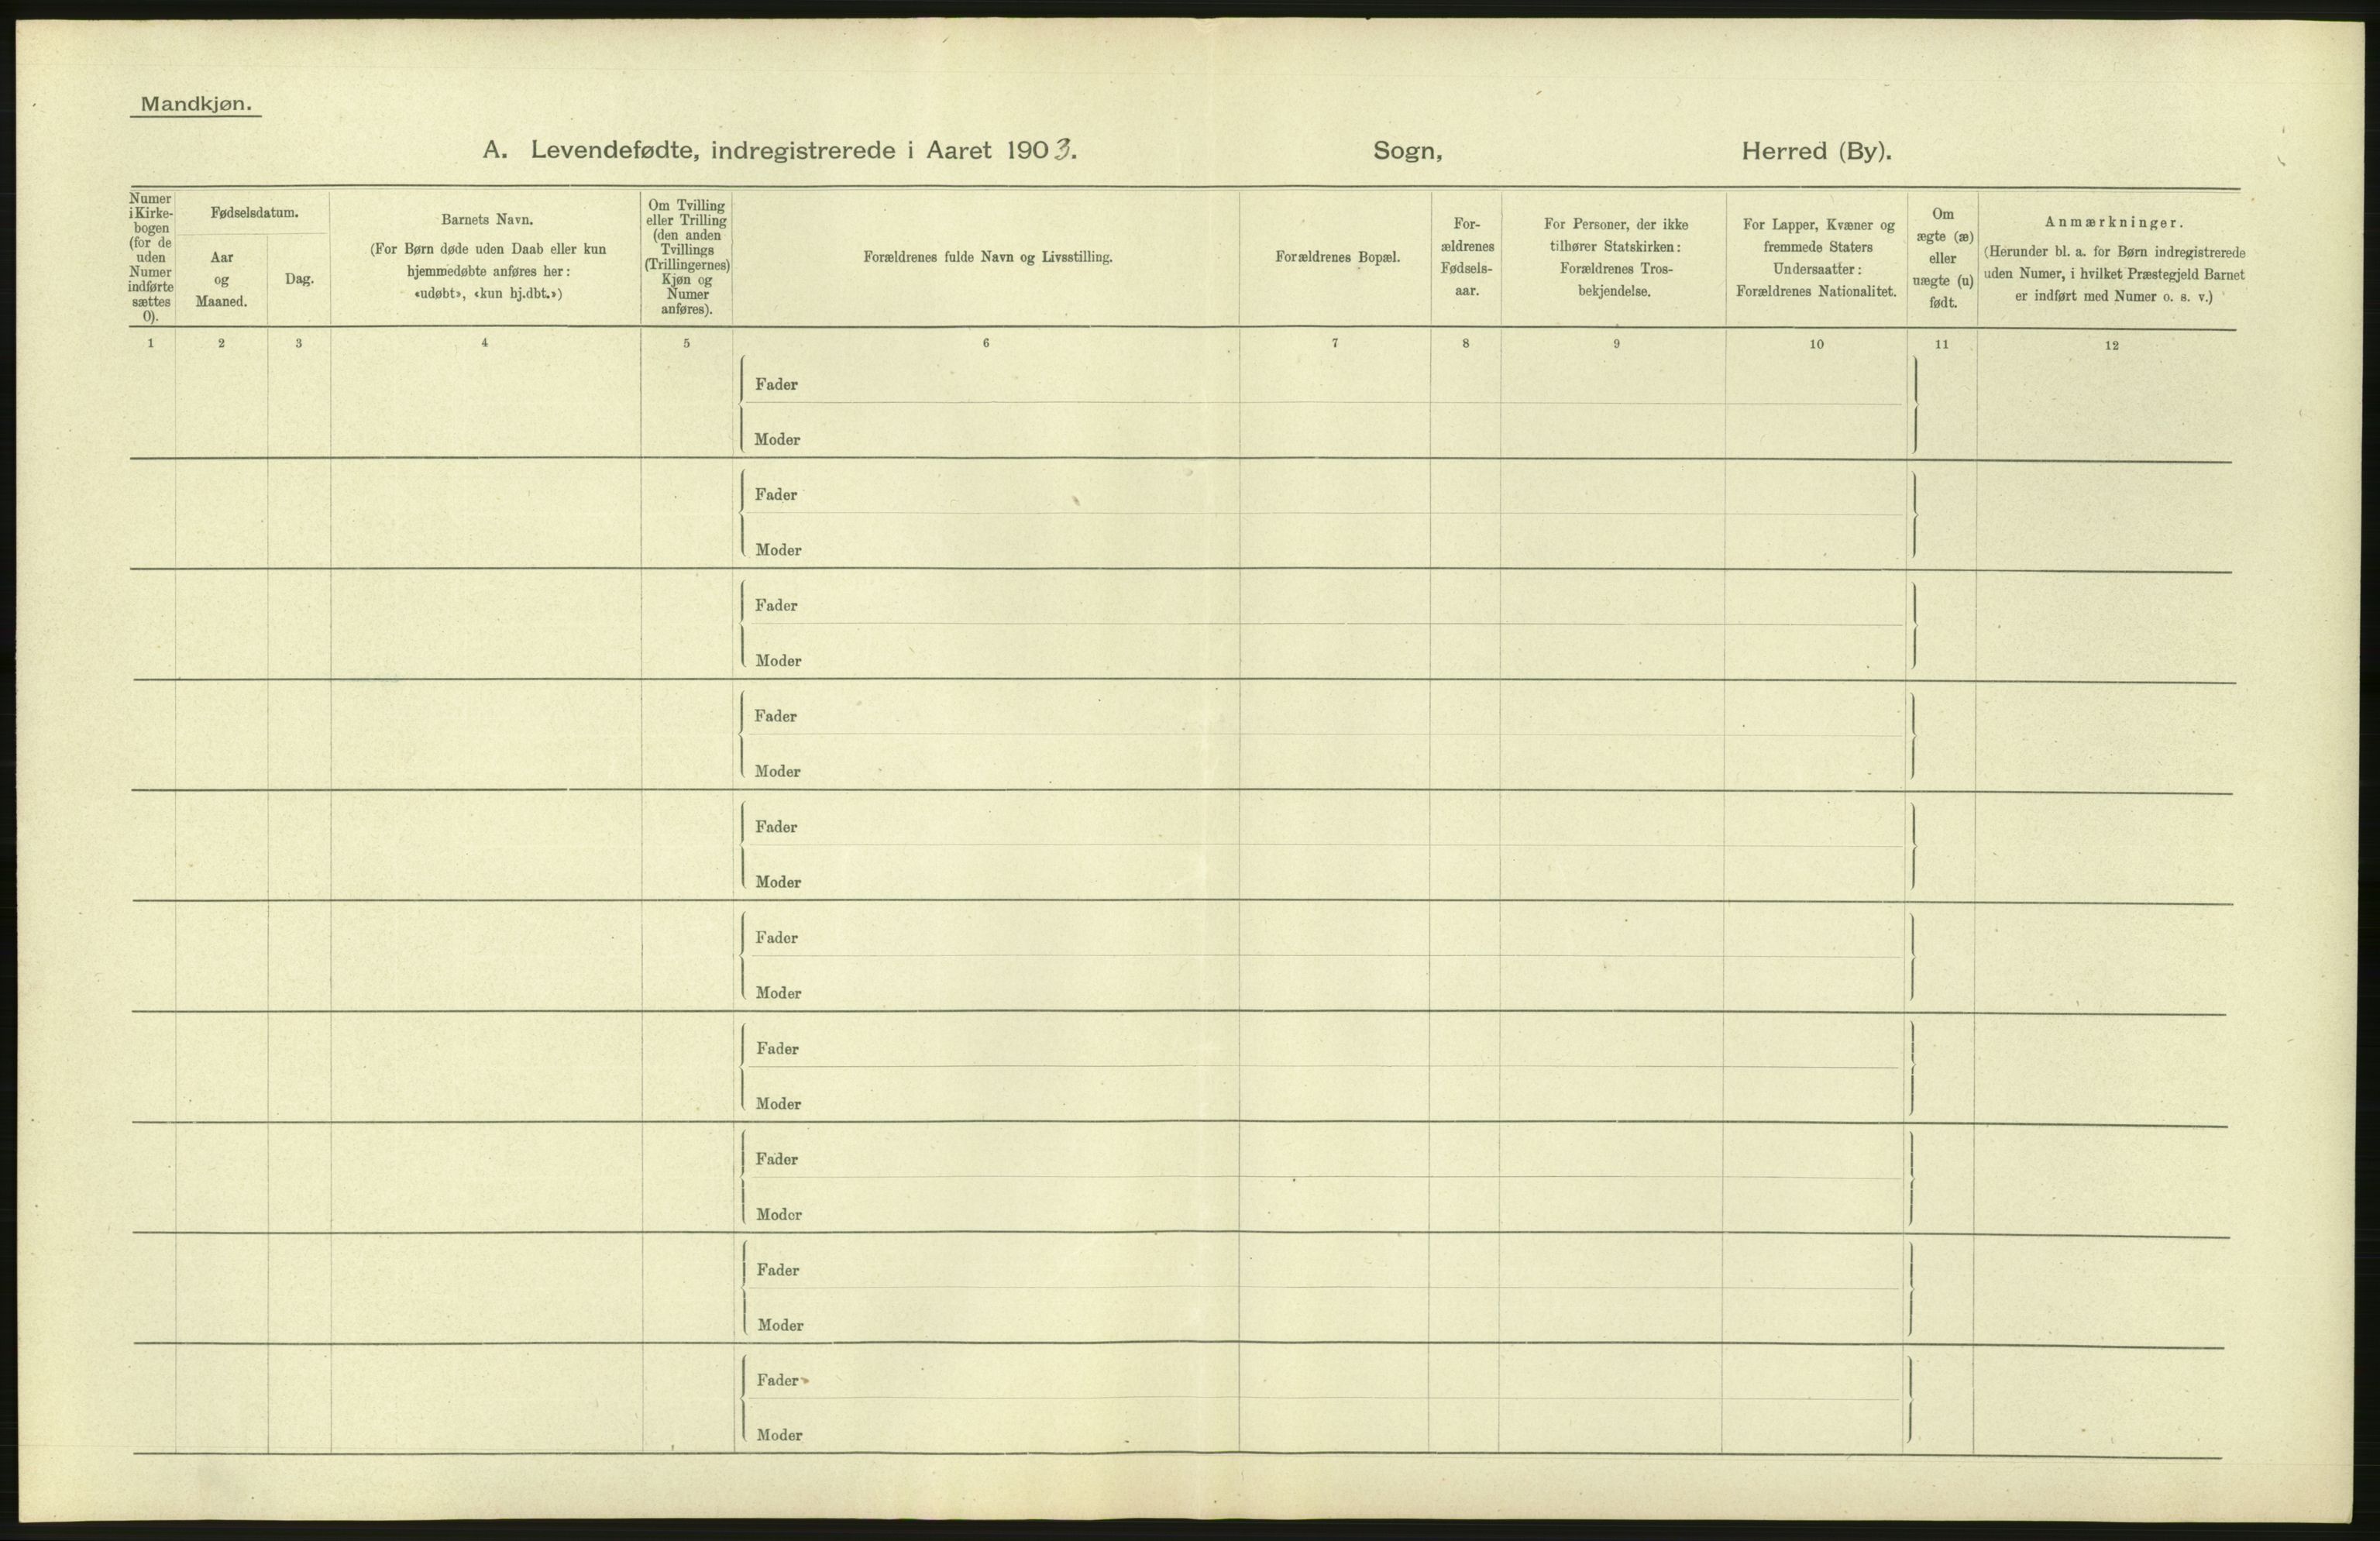 Mandkjøn.
A. Levendefødte, indregistrerede i Aaret 1903. Sogn, Herred (By).
Numer
i Kirke-
bogen
(for de
uden
Numer
indførte
sættes
0).
Fødselsdatum.
Aar
og
Maaned.
Dag.
Barnets Navn.
(For Børn døde uden Daab eller kun
hjemmedøbte anføres her:
«udøbt», «kun hj.dbt.»)
Om Tvilling
eller Trilling
(den anden
Tvillings
(Trillingernes)
Kjøn og
Numer
anføres).
Forældrenes fulde Navn og Livsstilling.
Forældrenes Bopæl.
For-
ældrenes
Fødsels-
aar.
For Personer, der ikke
tilhører Statskirken:
Forældrenes Tros-
bekjendelse.
For Lapper, Kvæner og
fremmede Staters
Undersaatter:
Forældrenes Nationalitet.
Om
ægte (æ)
eller
uægte (u)
født.
Anmærkninger.
(Herunder bl. a. for Børn indregistrerede
uden Numer, i hvilket Præstegjeld Barnet
er indført med Numer o. s. v.)
1 2 3 4 5 6 7 8 9 10 11 12
Fader
Moder
Fader
Moder
Fader
Moder
Fader
Moder
Fader
Moder
Fader
Moder
Fader
Moder
Fader
Moder
Fader
Moder
Fader
Moder